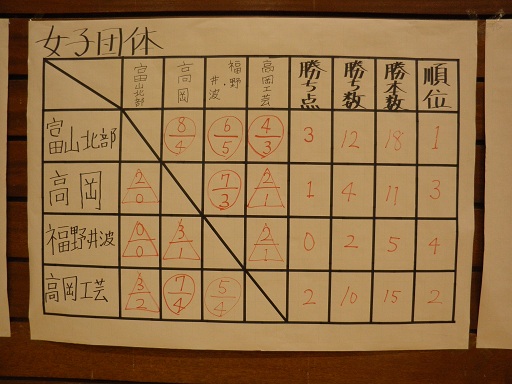 女子団体
富山北部 高岡 福野・井波 高岡工芸 勝ち点 勝ち数 勝本数 順位
富山北部 8/4 6/5 4/3 3 12 18 1
高岡 2/0 7/3 2/1 1 4 11 3
福野井波 0/0 3/1 2/1 0 2 5 4
高岡工芸 3/2 7/4 5/4 2 10 15 2